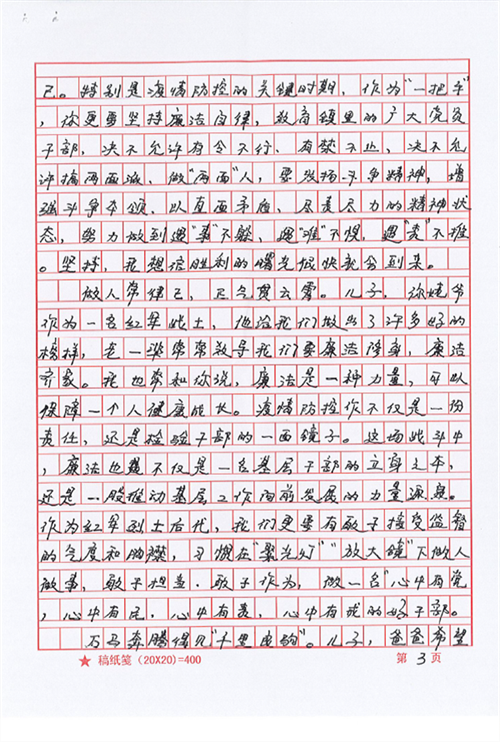 己。特别是疫情防控的关键时期，作为“一把手”
，你更要坚持廉洁自律，教育镇里的广大党员
干部，决不允许有令不行、有禁不止，决不允
许搞两面派、做“两面”人，要发扬斗争精神，增
强斗争本领，以直面矛盾、尽责尽力的精神状
态，努力做到遇“事”不躲、遇“难”不惧，遇“责”不推
。坚持，我想信胜利的曙光很快就会到来。
做人常律己，正气贯云霄。儿子，你姥爷
作为一名红军战士，他给我们做出了许多好的
榜样，老一辈常常教导我们要廉洁修身，廉洁
齐家。我也常和你说，廉洁是一种力量，可以
保障一个人健康成长。疫情防控作不仅是一份
责任，还是检验干部的一面镜子。这场战斗中
，廉洁也不仅是一名基层干部的立身之本，
还是一股推动基层工作向前发展的力量源泉。
作为红军烈士后代，我们更要有敢于接受监督
的气度和胸襟，习惯在“聚光灯”“放大镜”下做人
做事，敢于担当、敢于作为，做一名“心中有党
，心中有民，心中有责，心中有戒的好干部。
万马奔腾偶见“千里
儿子，爸爸希望
★ 稿纸笺（20X20)=400
第 3 页